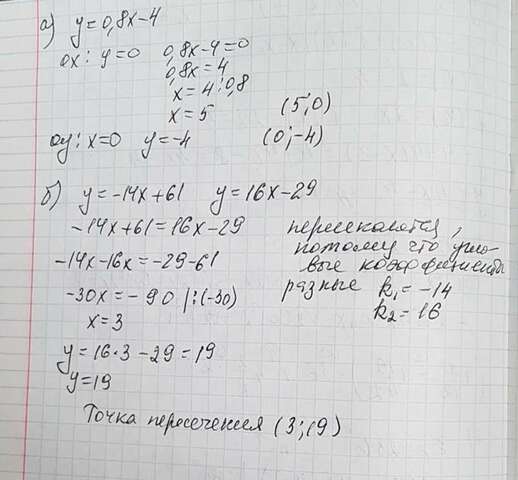 а) y=0,8x-4
ox: y=0 0,8x-4=0
0,8x=4
x=4:0,8
x=5 (5;0)
oy: x=0 y=-4 (0;-4)
б) y=-14x+61 y=16x-29
-14x+61=16x-29
-14x-16x=-29-61
-30x=-90 |:(-30)
x=3
y=16·3-29=19
y=19
пересекаются,
потому что угло-
вые коэффициенты
разные k₁=-14
k₂=16
Точка пересечения (3;19)